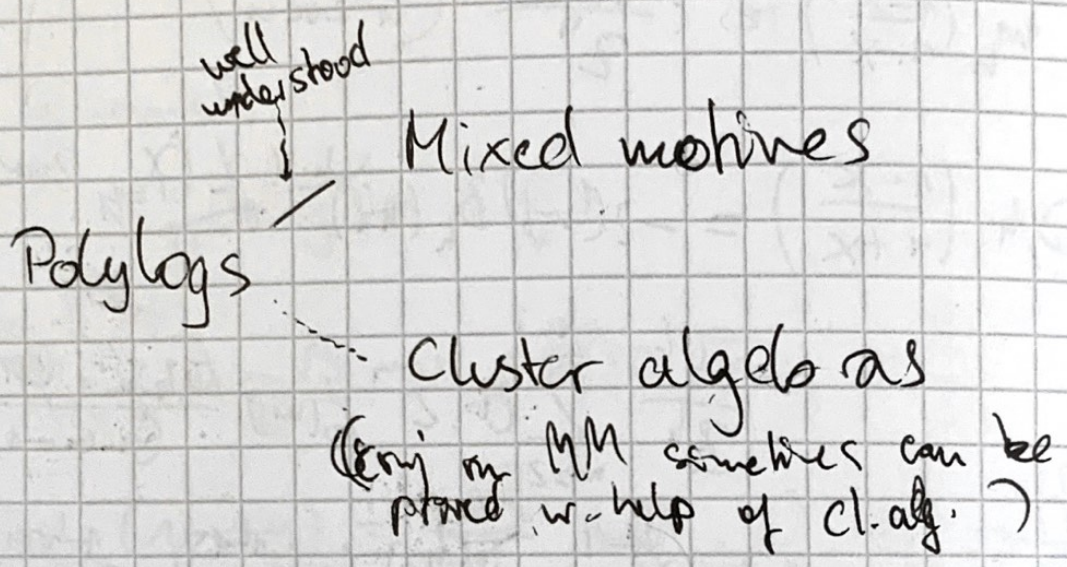 well
understood
Mixed motives
Polylogs
Cluster algebras
(Conj in MM sometimes can be
proved w. help of cl. alg. )